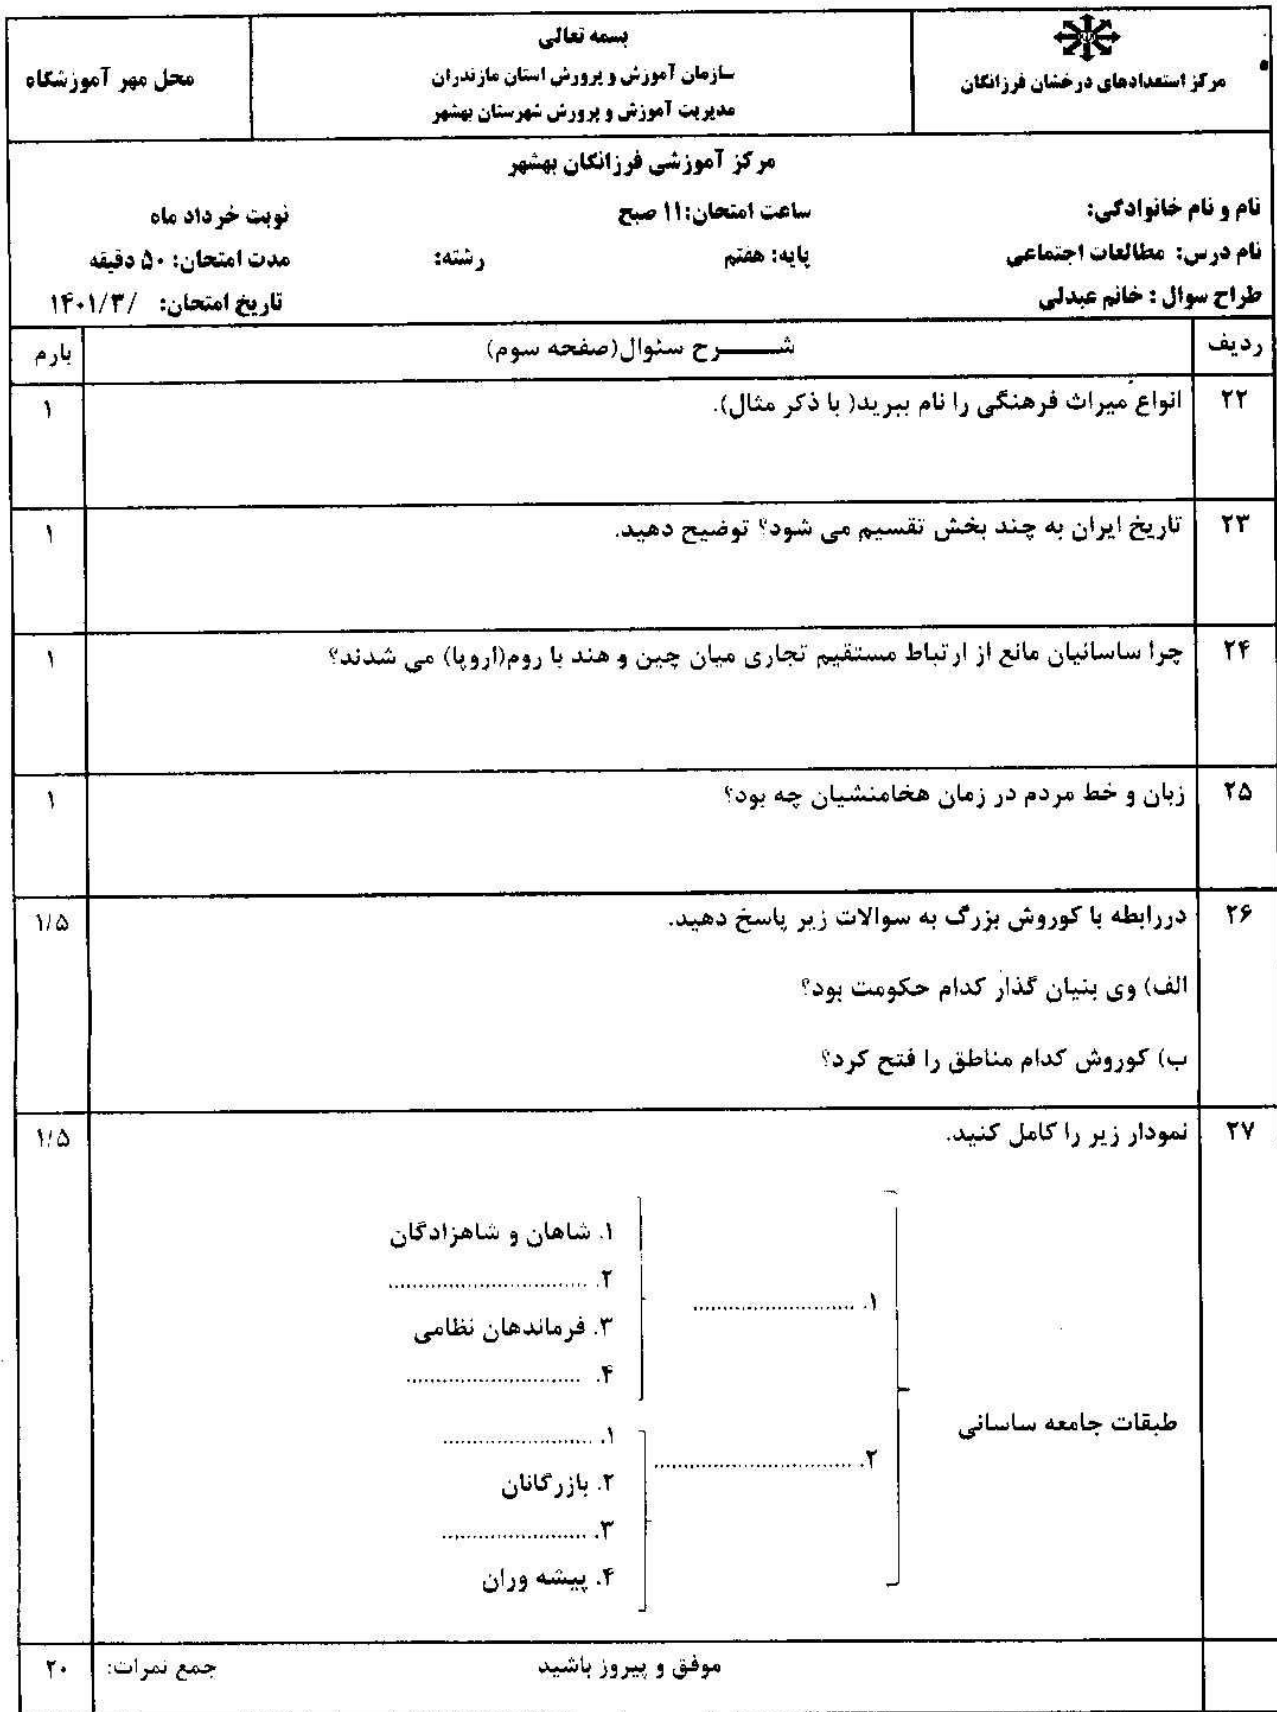 مرکز استعدادهای درخشان فرزانگان
بسمه تعالی
سازمان آموزش و پرورش استان مازندران
مدیریت آموزش و پرورش شهرستان بهشهر
محل مهر آموزشگاه
مرکز آموزشی فرزانگان بهشهر
نام و نام خانوادگی: ساعت امتحان:۱۱ صبح نوبت خرداد ماه
نام درس: مطالعات اجتماعی پایه: هفتم رشته: مدت امتحان: ۵۰ دقیقه
طراح سوال : خانم عبدلی تاریخ امتحان: /۱۴۰۱/۳
ردیف شـــــرح سئوال(صفحه سوم) بارم
۲۲ انواع میراث فرهنگی را نام ببرید( با ذکر مثال). ۱
۲۳ تاریخ ایران به چند بخش تقسیم می شود؟ توضیح دهید. ۱
۲۴ چرا ساسانیان مانع از ارتباط مستقیم تجاری میان چین و هند با روم(اروپا) می شدند؟ ۱
۲۵ زبان و خط مردم در زمان هخامنشیان چه بود؟ ۱
۲۶ دررابطه با کوروش بزرگ به سوالات زیر پاسخ دهید. ۱/۵
الف) وی بنیان گذار کدام حکومت بود؟
ب) کوروش کدام مناطق را فتح کرد؟
۲۷ نمودار زیر را کامل کنید. ۱/۵
طبقات جامعه ساسانی
۱. ..........................
۱. شاهان و شاهزادگان
۲. ................................
۳. فرماندهان نظامی
۴. ............................
۲. ................................
۱. ........................
۲. بازرگانان
۳. ........................
۴. پیشه وران
موفق و پیروز باشید جمع نمرات: ۲۰